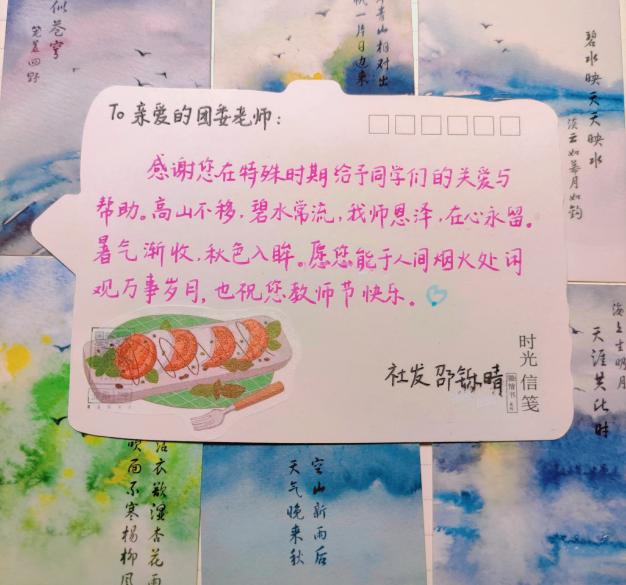 似苍穹
笼盖四野
青山相对出
帆一片日边来
碧水映天天映水
淡云如幕月如钩
To 亲爱的团委老师：
感谢您在特殊时期给予同学们的关爱与
帮助。高山不移，碧水常流，我师恩泽，在心永留。
暑气渐收，秋色入眸。愿您能于人间烟火处闲
观万事岁月，也祝您教师节快乐。
社发 邵铄晴
时光信笺
海上生明月
天涯共此时
沾衣欲湿杏花雨
吹面不寒杨柳风
空山新雨后
天气晚来秋